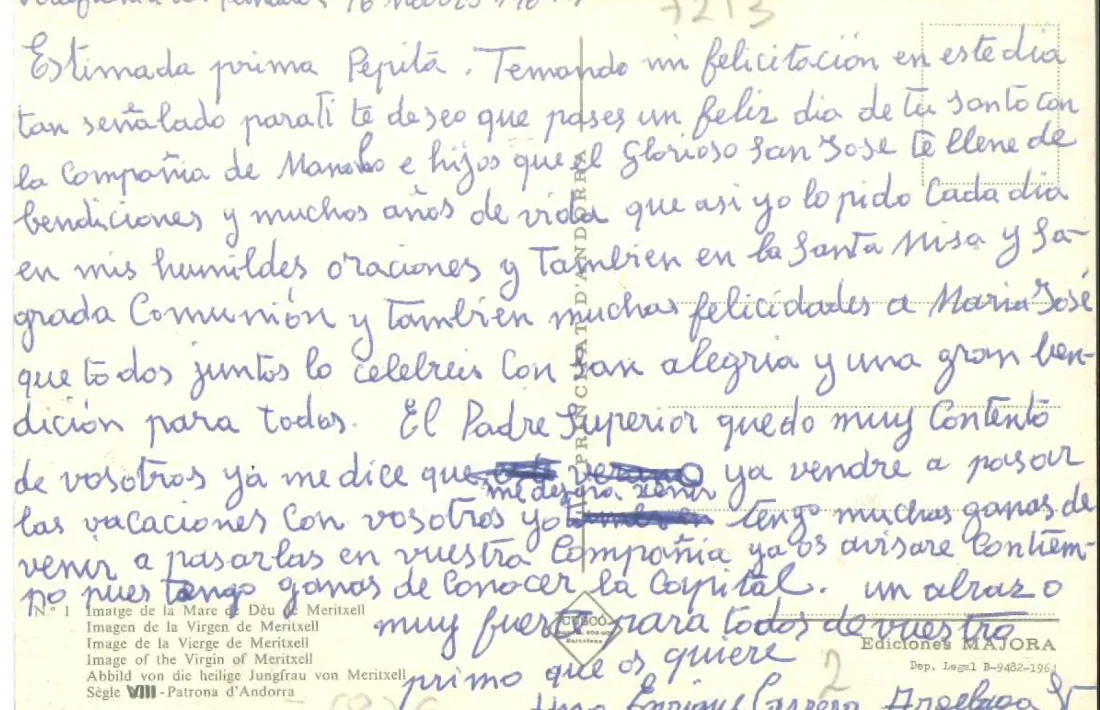 7213
Estimada prima Pepita. Temando mi felicitación en este dia
tan señalado para ti te deseo que pases un feliz dia de tu santo con
la Compañia de Manolo e hijos que el Glorioso San Jose te llene de
bendiciones y muchos años de vida que asi yo lo pido Cada dia
en mis humildes oraciones y Tambien en la Santa Misa y Sa-
grada Comunión y también muchas felicidades a Maria José
que todos juntos lo celebreis Con gran alegria y una gran ben-
dición para todos. El Padre Superior quedo muy Contento
de vosotros ya me dice que verano ya vendre a pasar
me dejara venir
las vacaciones Con vosotros yo tengo muchas ganas de
venir a pasarlas en vuestra Compañia ya os avisare Contiem-
po pues tengo ganas de Conocer la Capital. un abrazo
muy fuerte para todos de vuestro
primo que os quiere
Enrique
PRINCIPAT D'ANDORRA
N.º 1 Imatge de la Mare de Dèu de Meritxell
Imagen de la Virgen de Meritxell
Image de la Vierge de Meritxell
Image of the Virgin of Meritxell
Abbild von die heilige Jungfrau von Meritxell
Sègle VIII - Patrona d'Andorra
CUSCÓ
Barcelona
Ediciones MAJORA
Dep. Legal B-9482-1964
2